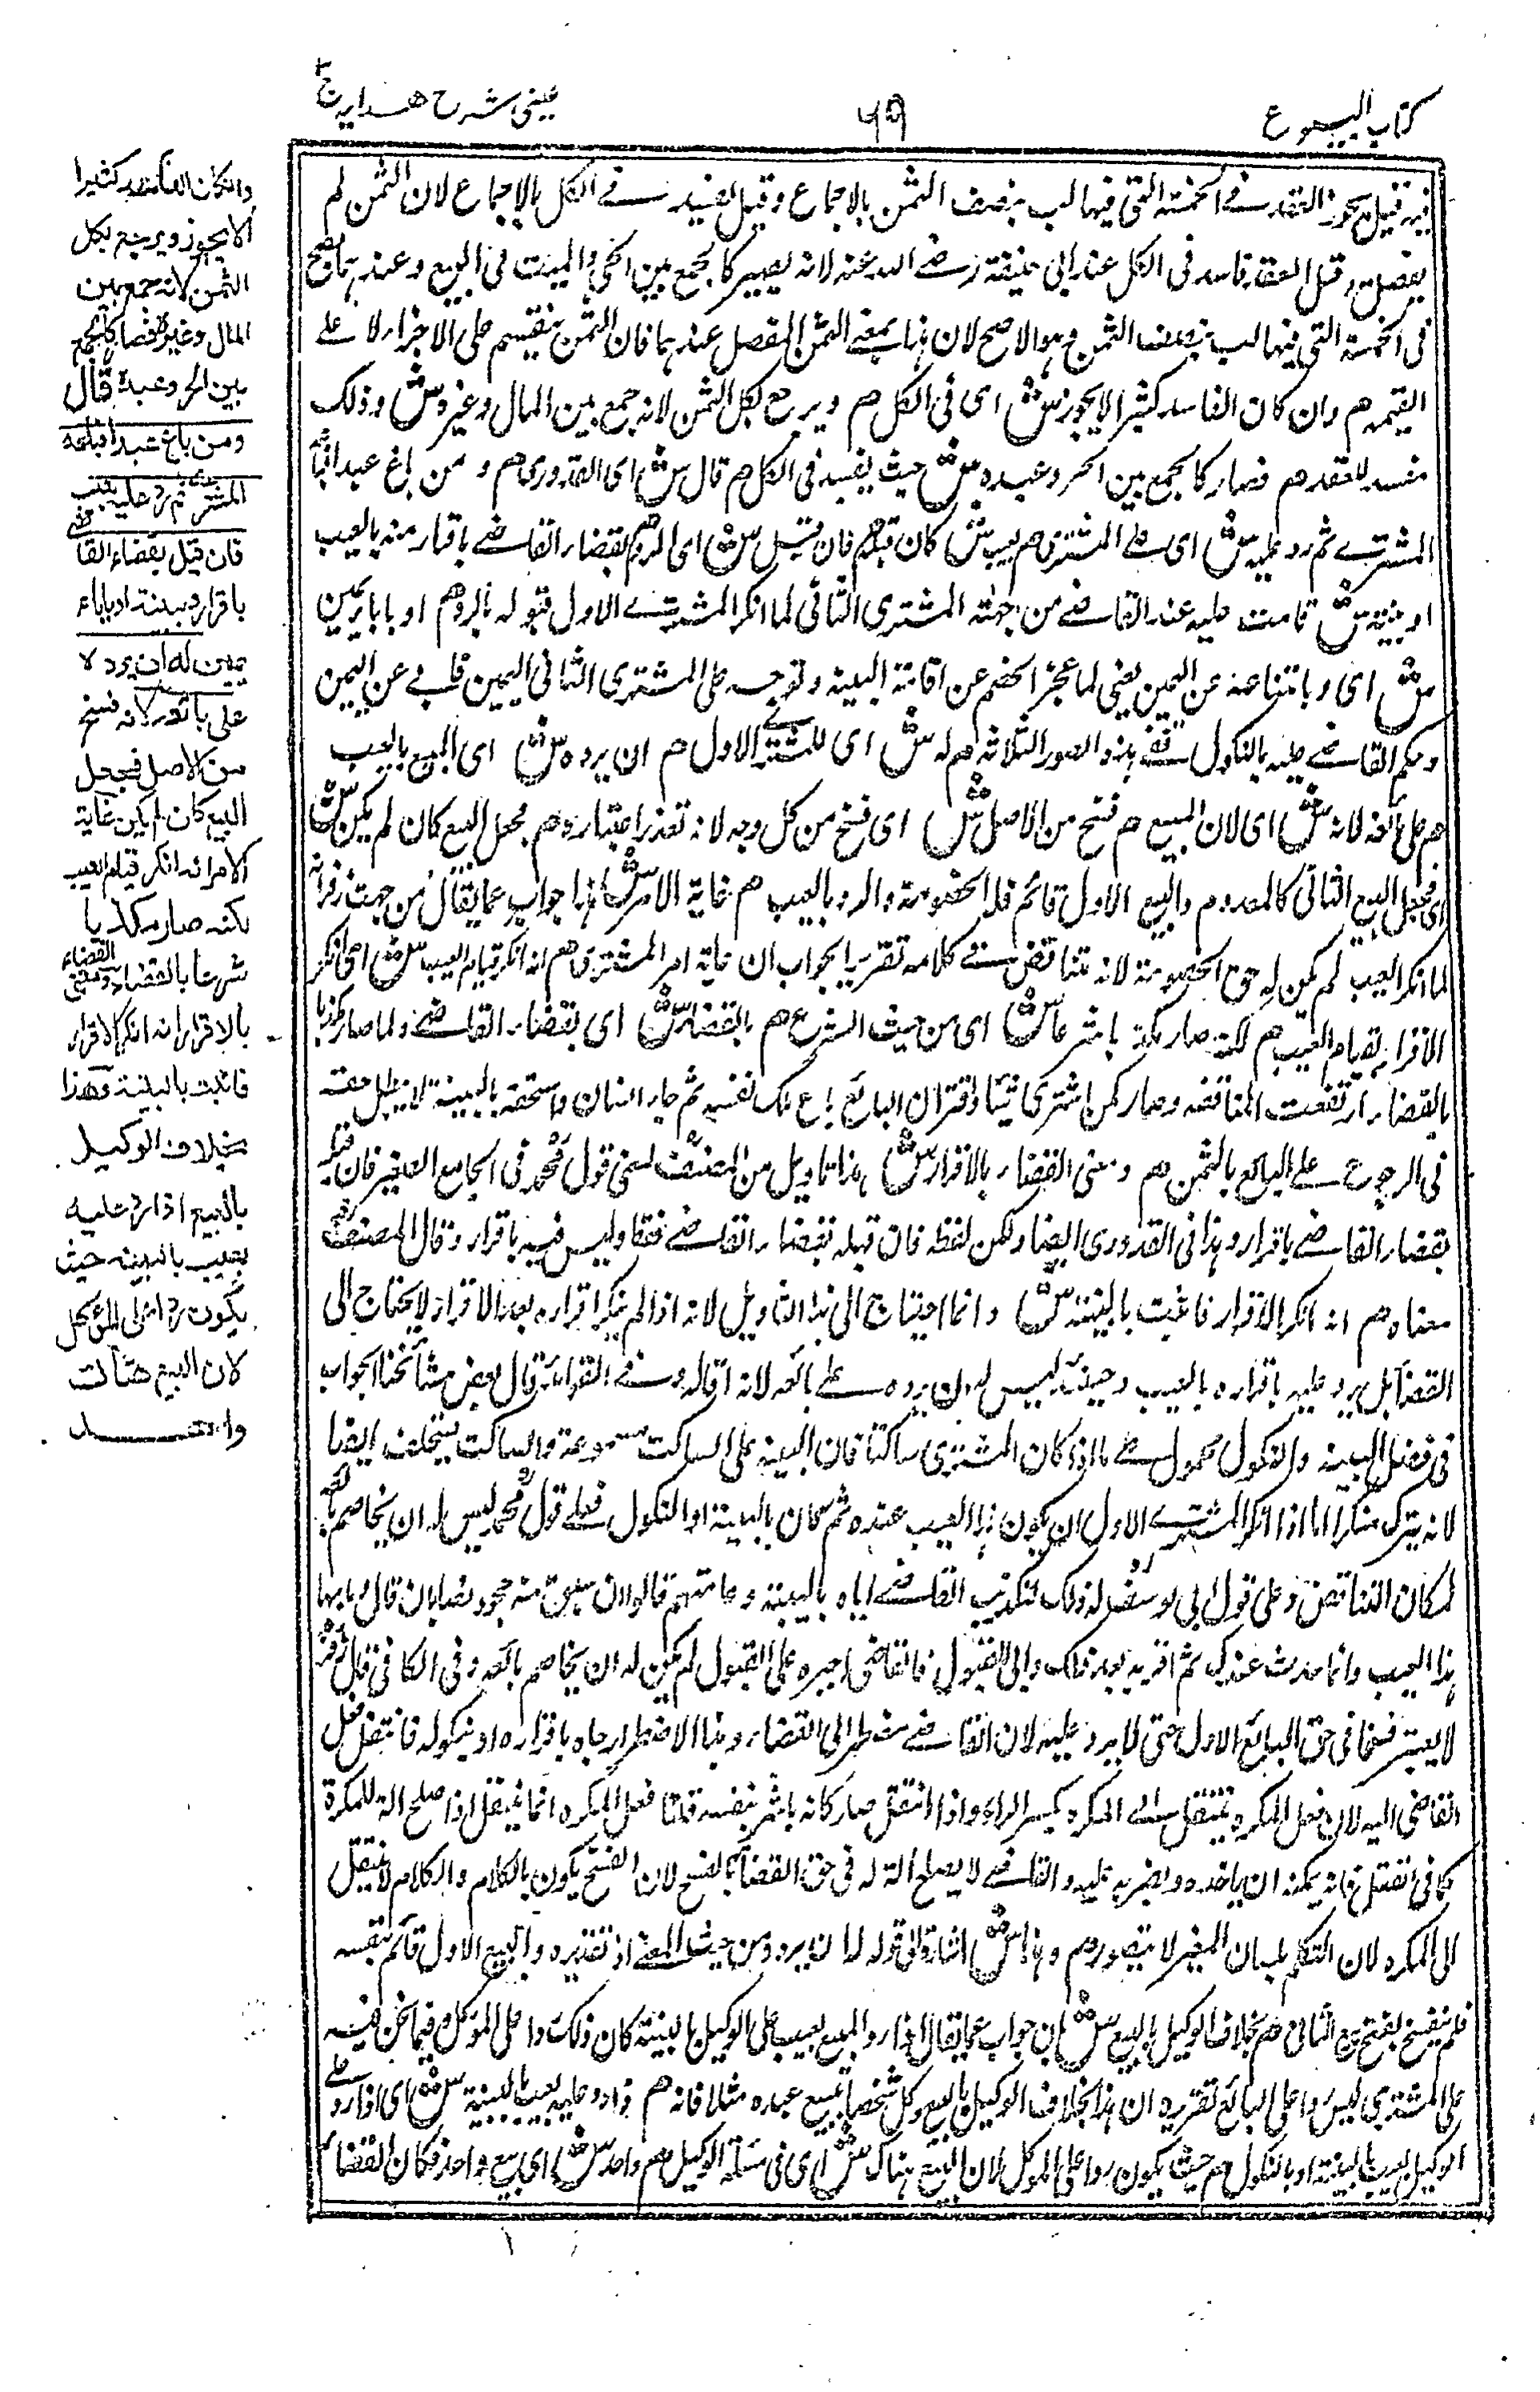 كتاب البيوع
٦٩
عينى شرح هدايه ج ٢
فيه قيل يجوز العقد فى الخمسة التى فيها لب بنصف الثمن بالاجماع وقيل يفسد فى الكل بالاجماع لان الثمن لم
يفصل وقيل العقد فاسد فى الكل عند ابى حنيفة رضى الله عنه لانه يصير كالجمع بين الحى والميت فى البيع وعندهما يصح
فى الخمسة التى فيها لب بنصف الثمن وهو الاصح لان هذا بمعنى الثمن المفصل عندهما فان الثمن ينقسم على الاجزاء لا على
القيمة م وان كان الفاسد كثيرا لا يجوز ش اى فى الكل م ويرجع بكل الثمن لانه جمع بين المال وغيره ش وذلك
مفسد للعقد م فصار كالجمع بين الحر وعبده ش حيث يفسد فى الكل م قال ش اى القدورى م ومن باع عبدا فباعه
المشترى ثم رد عليه ش اى على المشترى م بعيب ش كان قبله م فان قبل ش اى الرد م بقضاء القاضى باقرار منه بالعيب
او ببينة ش قامت عليه عند القاضى من جهة المشترى الثانى لما انكر المشترى الاول قبوله بالرد م او باباء يمين
ش اى وبامتناعه عن اليمين يعنى لما عجز الخصم عن اقامة البينة وتوجه على المشترى الثانى اليمين فابى عن اليمين
وحكم القاضى عليه بالنكول ففى هذه الصور الثلاثة م له ش اى للمشترى الاول م ان يرده ش اى المبيع بالعيب
م على بائعه لانه ش اى لان المبيع م فسخ من الاصل ش اى فسخ من كل وجه لانه تعذر اعتباره م فجعل البيع كان لم يكن ش
اى فجعل البيع الثانى كالمعدوم والبيع الاول قائم فله الخصومة والرد بالعيب م غاية الامر ش هذا جواب عما يقال من جهة زفر انه
لما انكر العيب لم يكن له حق الخصومة لانه تناقض فى كلامه تقرير الجواب ان غاية امر المشترى م انه انكر قيام العيب ش اى انكر
الاقرار بقيام العيب م لكنه صار مكذبا شرعا ش اى من حيث الشرع م بالقضاء ش اى بقضاء القاضى ولما صار مكذبا
بالقضاء ارتفعت المناقضة وصار كمن اشترى شيئا واقر ان البائع باع ملك نفسه ثم جاء انسان واستحقه بالبينة لا يبطل حقه
فى الرجوع على البائع بالثمن م ومعنى القضاء بالاقرار ش هذا تاويل من المصنف لمعنى قول محمد فى الجامع الصغير فان قبله
بقضاء القاضى باقرار وهذا فى القدورى ايضا ولكن لفظه فان قبله بقضاء القاضى فقط وليس فيه باقرار وقال المصنف
معناه م انه انكر الاقرار فاثبت بالبينة ش وانما احتاج الى هذا التاويل لانه اذا لم ينكر اقراره بعد الاقرار لا يحتاج الى
القضاء بل يرد عليه باقراره بالعيب وحينئذ ليس له ان يرده على بائعه لانه اقاله وفى الفوائد قال بعض مشائخنا الجواب
فى فصل البينة والنكول محمول على ما اذا كان المشترى ساكتا فان البينة على الساكت مسموعة والساكت يستحلف ايضا
لانه يترك منكرا اما اذا انكر المشترى الاول ان يكون هذا العيب عنده ثم كان بالبينة او النكول فعلى قول محمد ليس له ان يخاصم بائعه
لمكان التناقض وعلى قول ابى يوسف له ذلك لتكذيب القاضى اياه بالبينة وعامتهم قالوا ان سبق منه جحود نصا بان قال ما بها
هذا العيب وانما حدث عندك ثم اقر به بعد ذلك وابى القبول فالقاضى اجبره على القبول لم يكن له ان يخاصم بائعه وفى الكافى قال زفر
لا يعتبر فسخا فى حق البائع الاول حتى لا يرد عليه لان القاضى مضطر الى القضاء وهذا الاضطرار جاء باقراره او نكوله فانتقل فعل
القاضى اليه لان فعل المكره ينتقل الى المكره بكسر الراء واذا انتقل صار كانه باشر بنفسه قلنا فعل المكره انما ينتقل اذا صلح الة للمكره
كما فى القتل فانه يمكنه ان ياخذه ويضربه عليه والقاضى لا يصلح الة له فى حق القضاء بالفسخ لان الفسخ يكون بالكلام والكلام لا ينتقل
الى المكره لان التكلم بلسان الغير لا يتصور م وهذا ش اشارة الى قوله له ان يرد ومن حيث المعنى اذ تقديره والبيع الاول قائم بنفسه
فلم ينفسخ بفسخ بيع الثانى م بخلاف الوكيل بالبيع ش هذا جواب عما يقال اذا رد المبيع بعيب على الوكيل بالبينة كان ذلك ردا على الموكل وفيما نحن فيه
على المشترى ليس ردا على البائع تقريره ان هذا بخلاف الوكيل بالبيع وكل شخصا ببيع عبده مثلا فانه م اذا رد عليه بعيب بالبينة ش اى اذا رد على
الوكيل بعيب بالبينة او بالنكول م حيث يكون ردا على الموكل لان البيع هناك ش اى فى مسئلة الوكيل م واحد ش اى بيع واحد فكان القضاء
وان كان الفاسد كثيرا
لا يجوز ويرجع بكل
الثمن لانه جمع بين
المال وغيره فصار كالجمع
بين الحر وعبده قال
ومن باع عبدا فباعه
المشترى ثم رد عليه بعيب
فان قبل بقضاء القاضى
باقرار او ببينة او باباء
يمين له ان يرده
على بائعه لانه فسخ
من الاصل فجعل
البيع كان لم يكن غاية
الامر انه انكر قيام العيب
لكنه صار مكذبا
شرعا بالقضاء ومعنى القضاء
بالاقرار انه انكر الاقرار
فاثبت بالبينة وهذا
بخلاف الوكيل
بالبيع اذا رد عليه
بعيب بالبينة حيث
يكون ردا على الموكل
لان البيع هناك
واحد